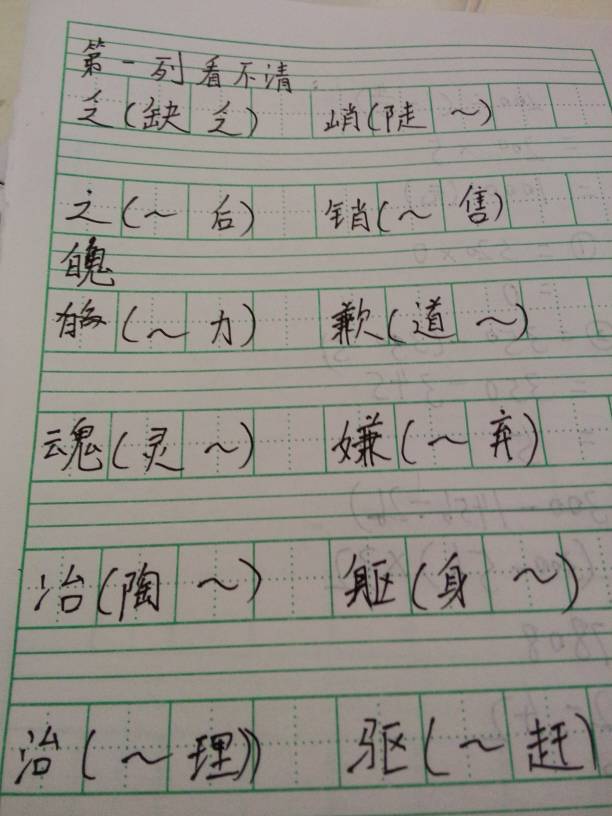 第一列看不清:
乏(缺乏) 峭(陡~)
之(~后) 销(~售)
魄
(~力) 歉(道~)
魂(灵~) 嫌(~弃)
冶(陶~) 躯(身~)
治(~理) 驱(~赶)